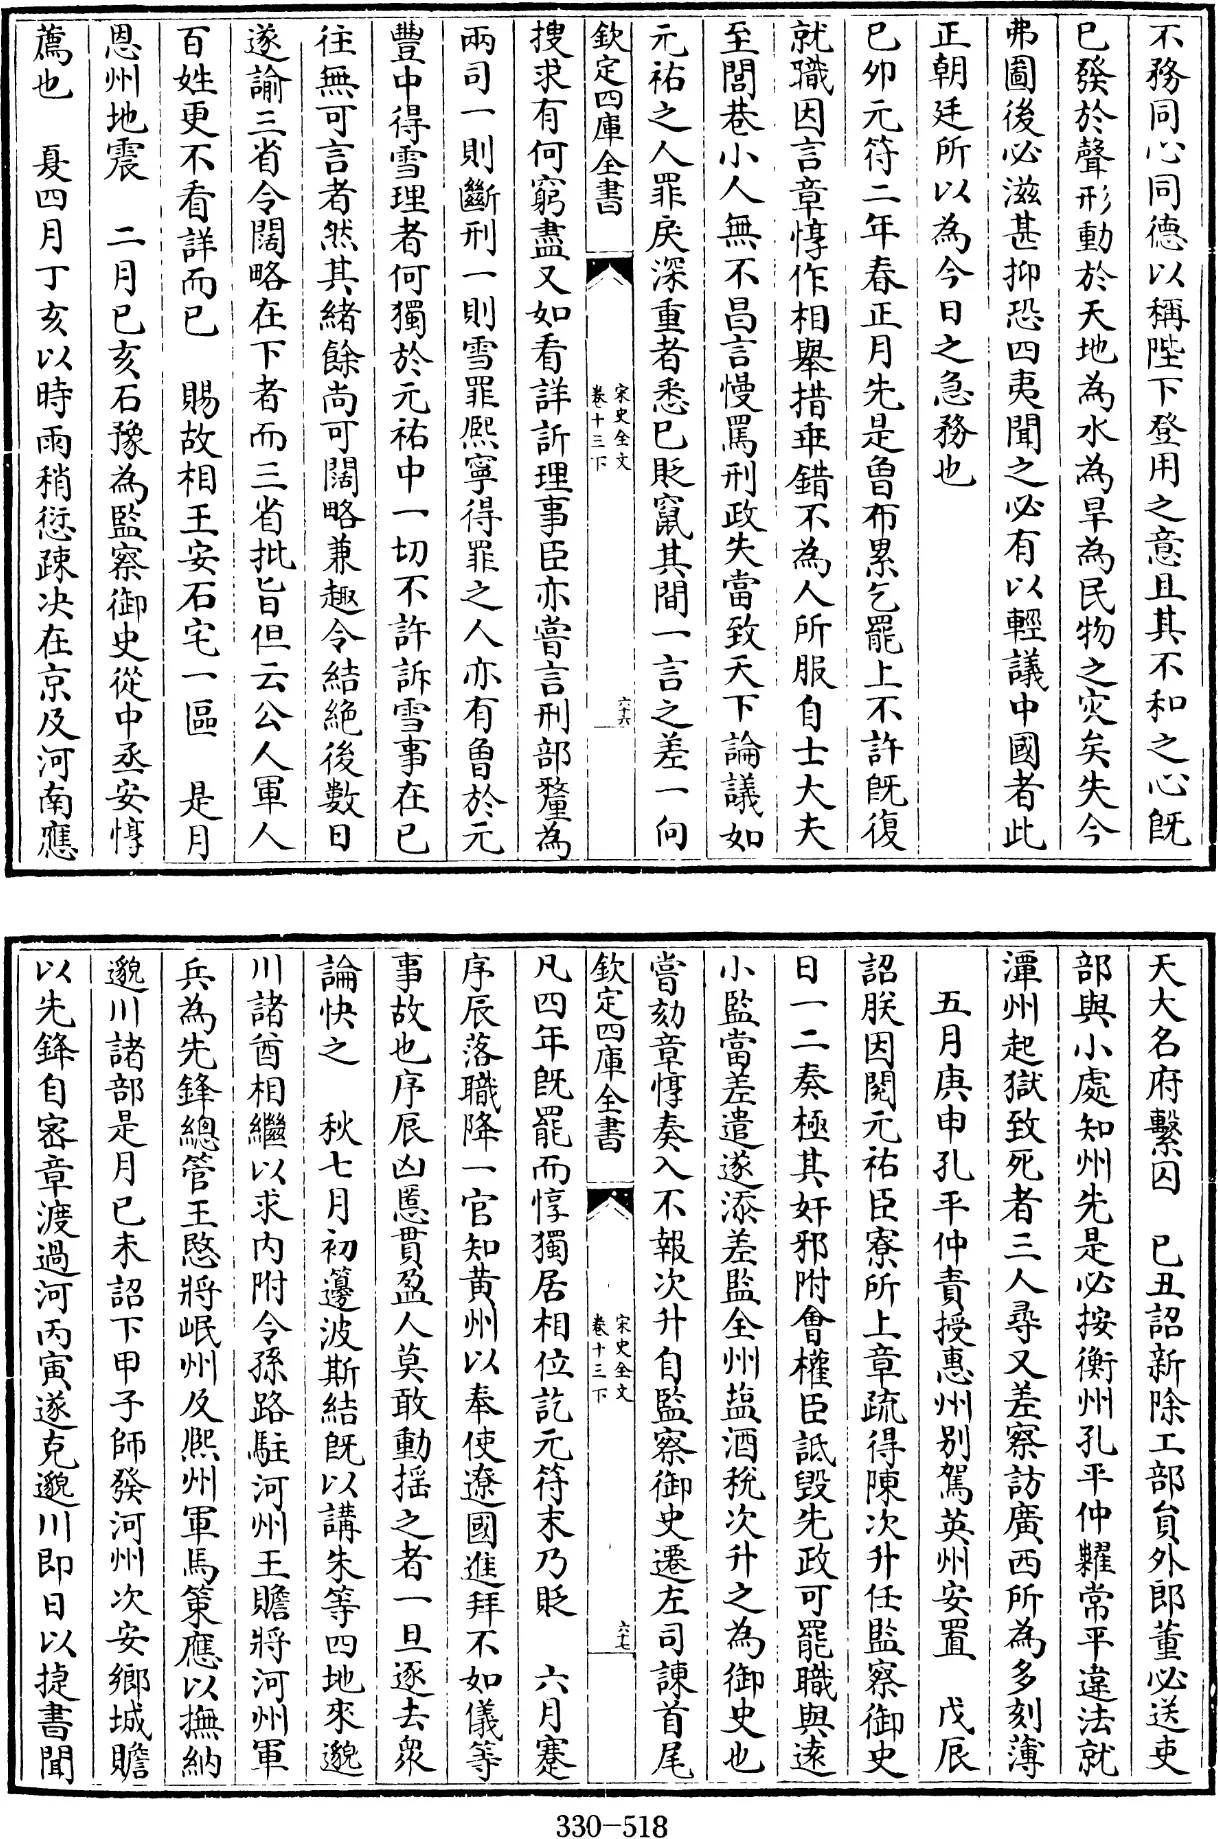 不務同心同德以稱陛下登用之意且其不和之心既
已發於聲形動於天地為水為旱為民物之灾矣失今
弗圖後必滋甚抑恐四夷聞之必有以輕議中國者此
正朝廷所以為今日之急務也
已夘元符二年春正月先是曽布累乞罷上不許既復
就職因言章惇作相舉措乖錯不為人所服自士大夫
至閭巷小人無不昌言慢罵刑政失當致天下論議如
元祐之人罪戾深重者悉已貶竄其間一言之差一向
欽定四庫全書
宋史全文
卷十三下
六十六
搜求有何窮盡又如看詳訢理事臣亦嘗言刑部釐為
兩司一則斷刑一則雪罪熈寧得罪之人亦有曽於元
豐中得雪理者何獨於元祐中一切不許訴雪事在已
往無可言者然其緒餘尚可闊略兼趣令結絶後數日
遂諭三省令闊略在下者而三省批旨但云公人軍人
百姓更不看詳而已　賜故相王安石宅一區　是月
恩州地震　二月已亥石豫為監察御史從中丞安惇
薦也　夏四月丁亥以時雨稍愆疎决在京及河南應
天大名府繫囚　已丑詔新除工部員外郎董必送吏
部與小處知州先是必按衡州孔平仲糶常平違法就
潭州起獄致死者三人尋又差察訪廣西所為多刻薄
五月庚申孔平仲責授惠州别駕英州安置　戊辰
詔朕因閱元祐臣寮所上章疏得陳次升任監察御史
日一二奏極其奸邪附會權臣詆毀先政可罷職與逺
小監當差遣遂添差監全州塩酒税次升之為御史也
嘗劾章惇奏入不報次升自監察御史遷左司諫首尾
欽定四庫全書
宋史全文
卷十三下
六十七
凡四年既罷而惇獨居相位訖元符末乃貶　六月蹇
序辰落職降一官知黄州以奉使遼國進拜不如儀等
事故也序辰凶慝貫盈人莫敢動揺之者一旦逐去衆
論快之　秋七月初籩波斯結既以講朱等四地來邈
川諸酋相繼以求内附令孫路駐河州王贍將河州軍
兵為先鋒總管王愍將岷州及熈州軍馬策應以撫納
邈川諸部是月已未詔下甲子師發河州次安鄉城贍
以先鋒自宻章渡過河丙寅遂克邈川即日以捷書聞
330-518